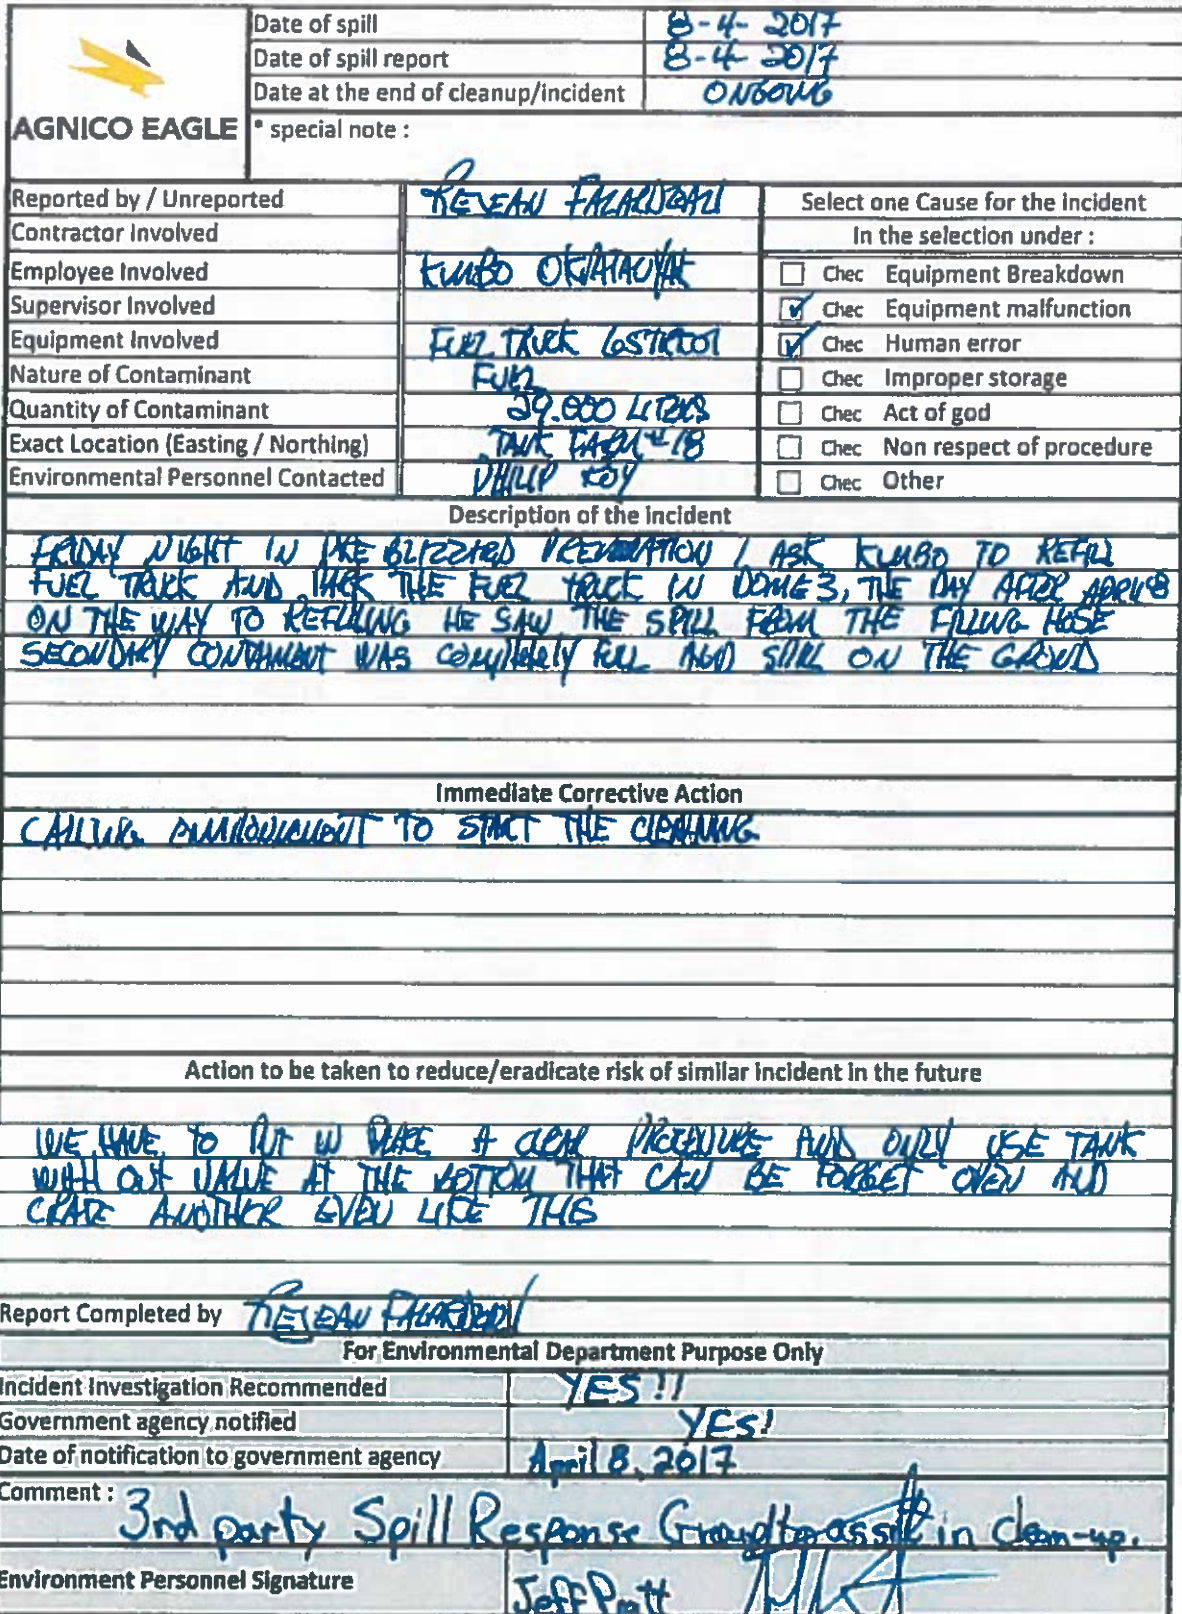 AGNICO EAGLE
Date of spill 8-4-2017
Date of spill report 8-4-2017
Date at the end of cleanup/incident ONGOING
* special note :
Reported by / Unreported
Contractor Involved
Employee Involved KUMBO
Supervisor Involved
Equipment Involved FUEL TRUCK
Nature of Contaminant FUEL
Quantity of Contaminant 29.000 LITERS
Exact Location (Easting / Northing) TANK FARM #18
Environmental Personnel Contacted PHILIP ROY
Select one Cause for the incident
In the selection under :
Chec Equipment Breakdown
Chec Equipment malfunction
Chec Human error
Chec Improper storage
Chec Act of god
Chec Non respect of procedure
Chec Other
Description of the incident
FRIDAY NIGHT IN PRE BLIZZARD I ASK KUMBO TO REFILL
FUEL TRUCK AND PARK THE FUEL TRUCK IN DOME 3, THE DAY AFTER APRIL 8
ON THE WAY TO REFILLING HE SAW THE SPILL FROM THE FILLING HOSE
SECONDARY CONTAMENT WAS COMPLETELY FULL AND SPILL ON THE GROUND
Immediate Corrective Action
CALLING TO START THE CLEANING
Action to be taken to reduce/eradicate risk of similar incident in the future
WE HAVE TO PUT IN PLACE A CLEAR PROCEDURE AND ONLY USE TANK
WITH OUT VALVE AT THE BOTTOM THAT CAN BE FORGET OPEN AND
CRATE ANOTHER EVEN LIKE THIS
Report Completed by
For Environmental Department Purpose Only
Incident Investigation Recommended YES !!
Government agency notified YES!
Date of notification to government agency April 8, 2017
Comment : 3rd party Spill Response Group to assist in clean-up.
Environment Personnel Signature Jeff Pratt